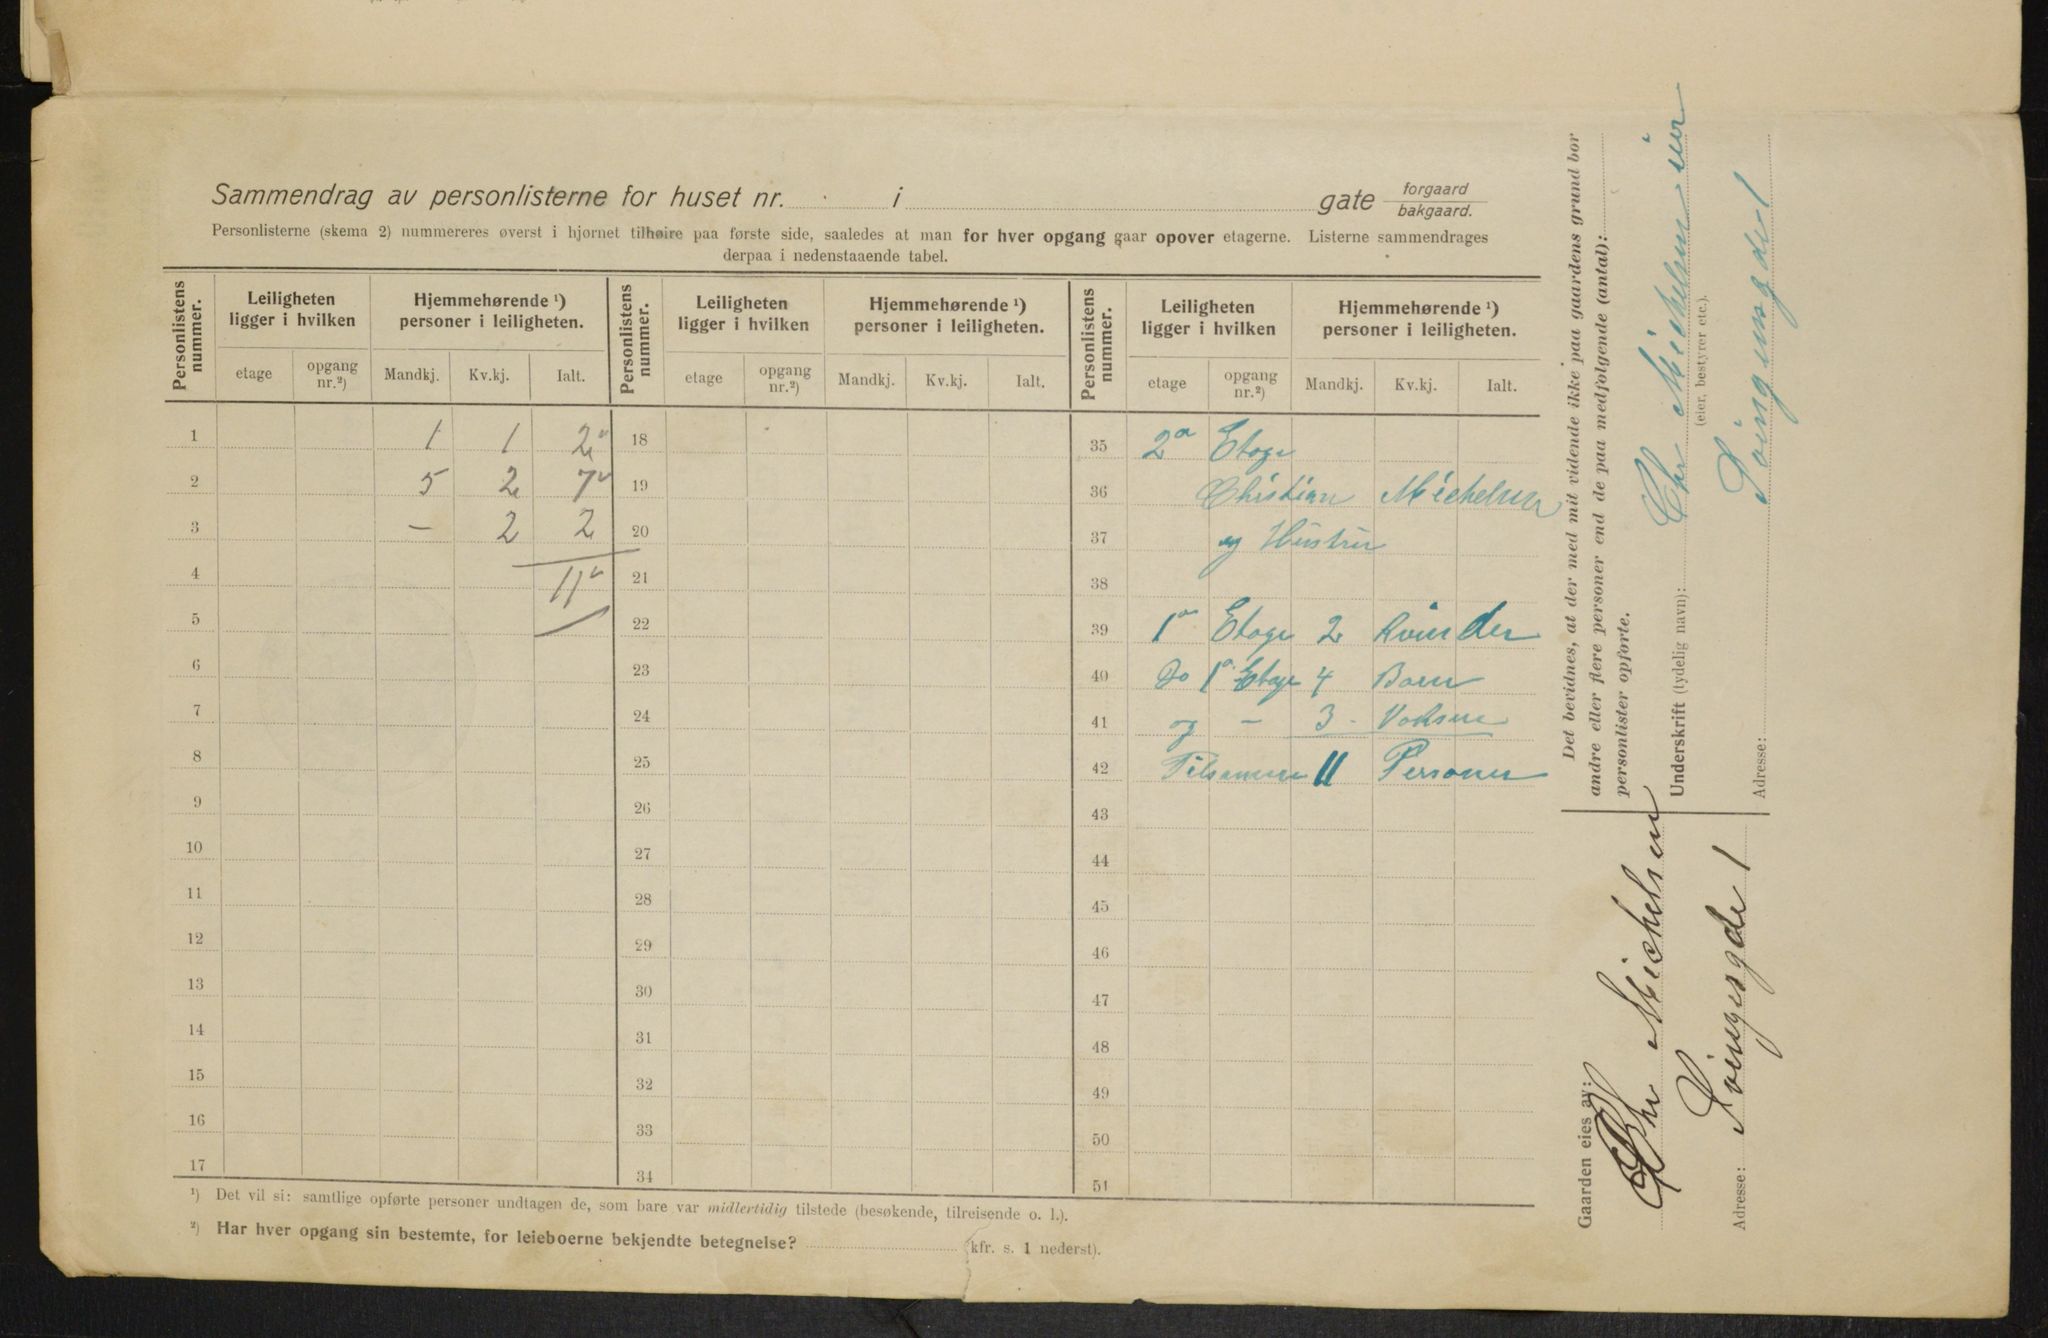 Sammendrag av personlisterne for huset nr. i gate forgaard bakgaard.
Personlisterne (skema 2) nummereres øverst i hjørnet tilhøire paa første side, saaledes at man for hver opgang gaar opover etagerne. Listerne sammendrages
derpaa i nedenstaaende tabel.
Personlistens nummer. Leiligheten ligger i hvilken etage opgang nr.²) Hjemmehørende ¹) personer i leiligheten. Mandkj. Kv.kj. Ialt.
1 1 1 2
2 5 2 7
3 — 2 2
4 11
5
6
7
8
9
10
11
12
13
14
15
16
17
Personlistens nummer. Leiligheten ligger i hvilken etage opgang nr.²) Hjemmehørende ¹) personer i leiligheten. Mandkj. Kv.kj. Ialt.
18
19
20
21
22
23
24
25
26
27
28
29
30
31
32
33
34
Personlistens nummer. Leiligheten ligger i hvilken etage opgang nr.²) Hjemmehørende ¹) personer i leiligheten. Mandkj. Kv.kj. Ialt.
35 2a Etage
36 Christian Michelsen
37 og Hustru
38
39 1a Etage 2 Kvinder
40 Do 1a Etage 4 Børn
41 og — 3 - Voksne
42 Tilsamen 11 Personer
43
44
45
46
47
48
49
50
51
¹) Det vil si: samtlige opførte personer undtagen de, som bare var midlertidig tilstede (besøkende, tilreisende o. l.).
²) Har hver opgang sin bestemte, for leieboerne bekjendte betegnelse? (kfr. s. 1 nederst).
Det bevidnes, at der med mit vidende ikke paa gaardens grund bor
andre eller flere personer end de paa medfølgende (antal):
personlister opførte.
Underskrift (tydelig navn): Chr Michelsen eier
(eier, bestyrer etc.).
Adresse: Svingensgde 1
Gaarden eies av:
Chr Michelsen
Adresse: Svingensgde 1